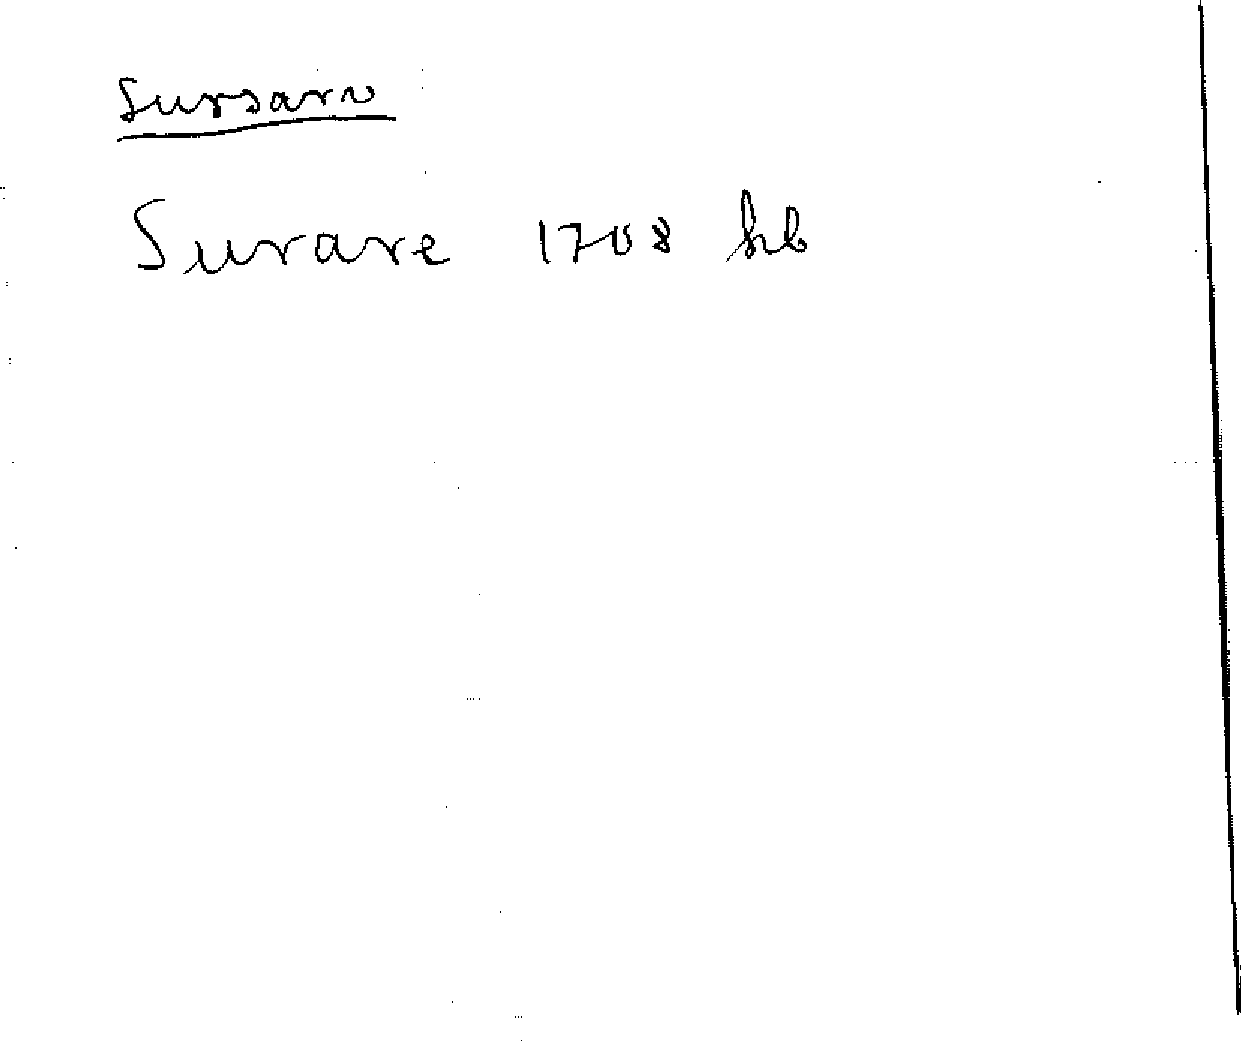 Sursarv
Surare 1708 hb